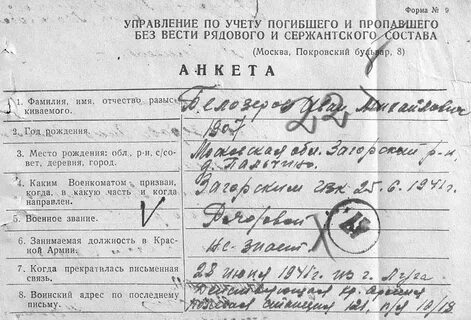 Форма № 9
УПРАВЛЕНИЕ ПО УЧЕТУ ПОГИБШЕГО И ПРОПАВШЕГО
БЕЗ ВЕСТИ РЯДОВОГО И СЕРЖАНТСКОГО СОСТАВА
(Москва, Покровский бульвар, 8)
АНКЕТА
1. Фамилия, имя, отчество разыс-
киваемого. Белозеров Иван Михайлович
22
2. Год рождения. 1907
3. Место рождения: обл., р-н, с/со-
вет, деревня, город. Московская обл. Загорский р-н
д.
4. Каким Военкоматом призван,
когда, в какую часть и когда
направлен. Загорским 25.6.1941 г.
5. Военное звание. Рядовой
6. Занимаемая должность в Крас-
ной Армии. не-знает
7. Когда прекратилась письменная
связь. 28 июня 1941 г. из г. Луга
8. Воинский адрес по последнему
письму. Действующая кр. армия
станция 121, п/я